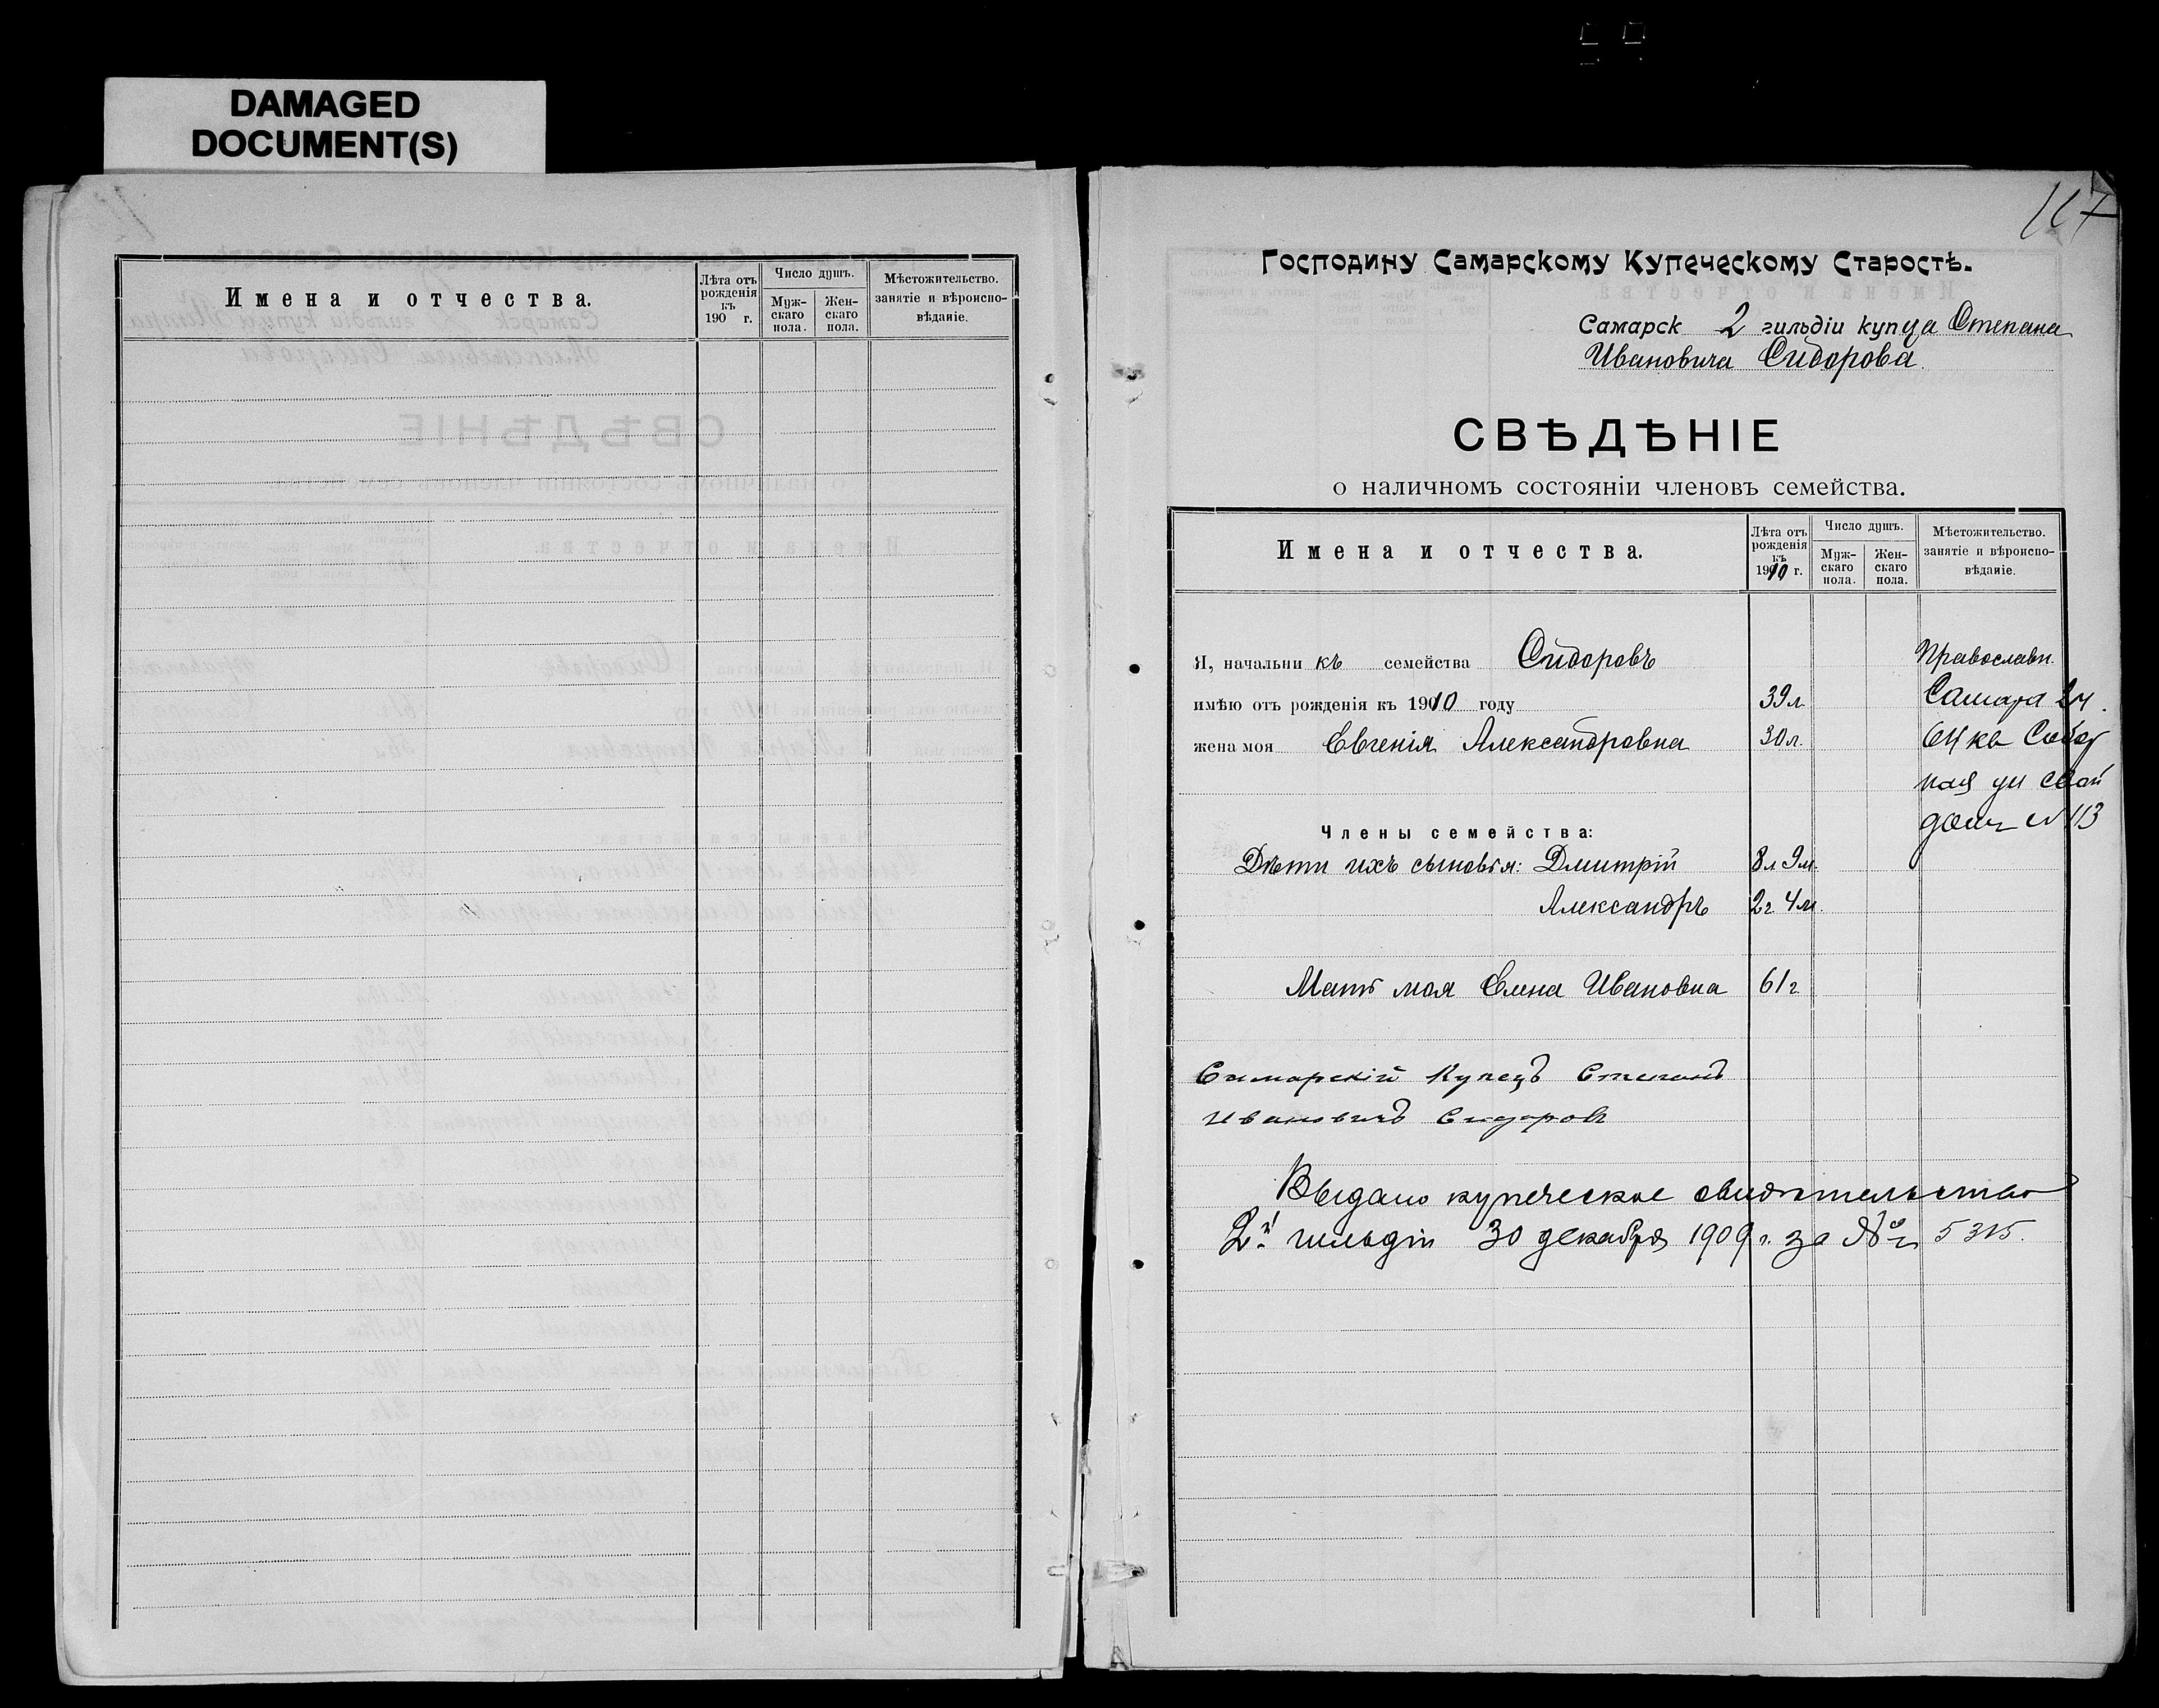 DAMAGED
DOCUMENT(S)
Имена и отчества.
Лѣта отъ рожденія къ 190 г.
Число душъ.
Муж-скаго пола.
Жен-скаго пола.
Мѣстожительство. занятіе и вѣроиспо-вѣданіе.
117
Господину Самарскому Купеческому Старостѣ.
Самарск 2 гильдіи купца Степана
Ивановича Сидорова.
СВѢДѢНІЕ
о наличномъ состояніи членовъ семейства.
Имена и отчества.
Лѣта отъ рожденія къ 1910 г.
Число душъ.
Муж-скаго пола.
Жен-скаго пола.
Мѣстожительство. занятіе и вѣроиспо-вѣданіе.
Я, начальникъ семейства Сидоровъ Православн.
имѣю отъ рожденія къ 1910 году 39 л. Самара 2 ч.
жена моя Евгенія Александровна 30 л. 64 кв Собор
ная ул свой
домъ N 113
Члены семейства:
Дѣти ихъ сыновья: Дмитрій 8 л 9 м.
Александръ 2 г. 4 м.
Мать моя Елена Ивановна 61 г
Самарскій Купецъ Степанъ
Ивановичъ Сидоровъ
Выдано купеческое свидѣтельство
2й гильдіи 30 декабря 1909 г. за № 5315.